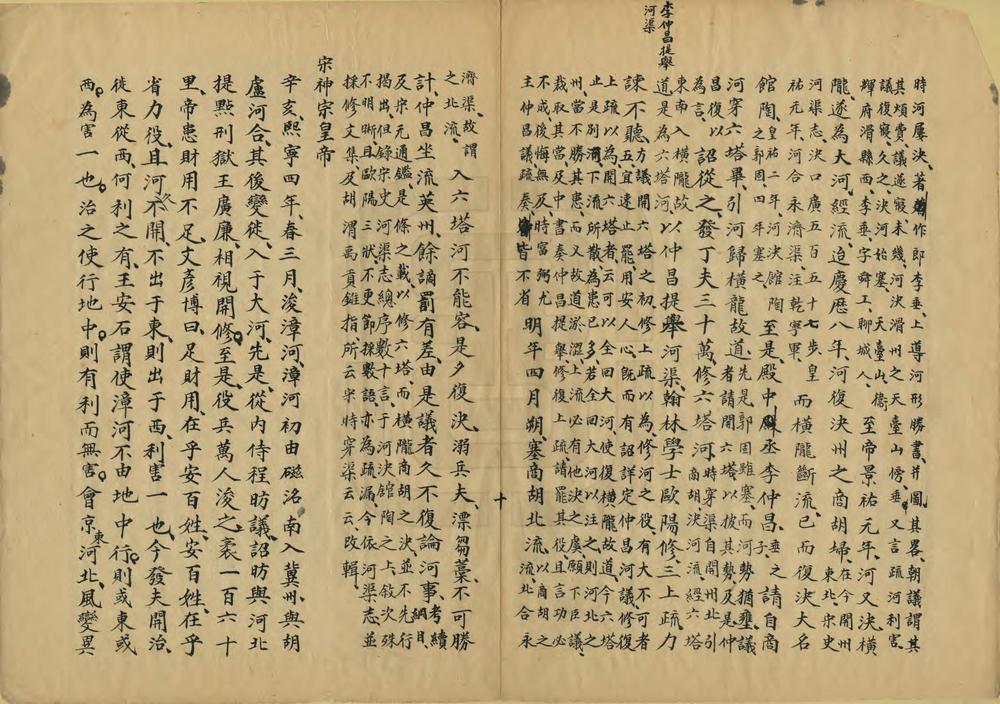 李仲昌提舉
河渠
時河屢決、著作郎李垂、上導河形勝書、并圖、其畧、朝議謂其
其煩費、議遂寢、未幾、河決滑州之天臺山傍、垂、又言疏河利害、
議復寢、之決河始塞、天臺山、衞
輝府滑縣西、李垂、字舜工、聊城人、至帝景祐元年、河又決橫
隴遂為大河經流、迨慶曆八年、河復決州之商胡埽、在今開州
東北、宋史
河渠志、決口廣五百五十七步、皇
祐元年、河合永濟渠、注乾寧軍、而橫隴斷流、已而復決大名
館陶、皇祐二年、河決館陶
之郭固、四年塞之、至是、殿中丞李仲昌、垂之
子、請自商
河穿六塔渠、引河歸橫龍故道、先是郭固雖塞、而河勢猶壅、議
者請開六塔、以披其勢、及是仲
昌復以
為言、詔從之、發丁夫三十萬修六塔河、時穿渠自開州北引
商胡決河流、經六塔
東南入橫隴故
道、是為六塔河、以仲昌提舉河渠、翰林學士歐陽修三上疏力
諫不聽、方議開六塔之初、修上疏以為修河之役、有大不可者
五、宜速止罷、用安人心、旣而有詔詳定仲昌河議、修復
上疏、以為開六塔者、云可以全回大河、使復橫隴故道、今六塔
止是別河下流、所散為患已多、若全回大河以注之、則河北之
州、當不勝其患、而又故道淤澀、上流必有他決之虞、願下臣議、
裁取其當、及中書奏仲昌提舉修復、上疏請罷其役、且言功必
不成、後悔無及、時富弼尤
主仲昌議、疏奏皆不省、明年四月朔、塞商胡北流、以商胡之
流、北合永
濟渠、故謂
之北流、入六塔河、不能容、是夕復決、溺兵夫、漂芻藁、不可勝
計、仲昌坐流英州、餘謫罰有差、由是議者久不復論河事、考續
綱目、
及宋元通鑑、是條之載、以修六塔、而橫隴商胡之決、並不先行
揭出、但錄宋史河渠志總序數十言于河決館陶之上、敘次殊
不明晰、且歐陽三狀、不更節採數語、亦為疏漏、今依河渠志、並
採修文集、及胡渭禹貢錐指所云宋時穿渠云云、改輯、
宋神宗皇帝
辛亥、熙寧四年、春三月、浚漳河、漳河初由磁洺南入冀州、與胡
盧河合、其後變徙、入于大河、先是、從內侍程昉議、詔昉與河北
提點刑獄王廣廉、相視開修、至是、役兵萬人浚之、袤一百六十
里、帝患財用不足、文彥博曰、足財用、在乎安百姓、安百姓、在乎
省力役、且河久不開、不出于東、則出于西、利害一也、今發夫開治、
徙東從西、何利之有、王安石謂使漳河不由地中行、則或東或
西、為害一也、治之使行地中、則有利而無害、會京東河北、風變異
十